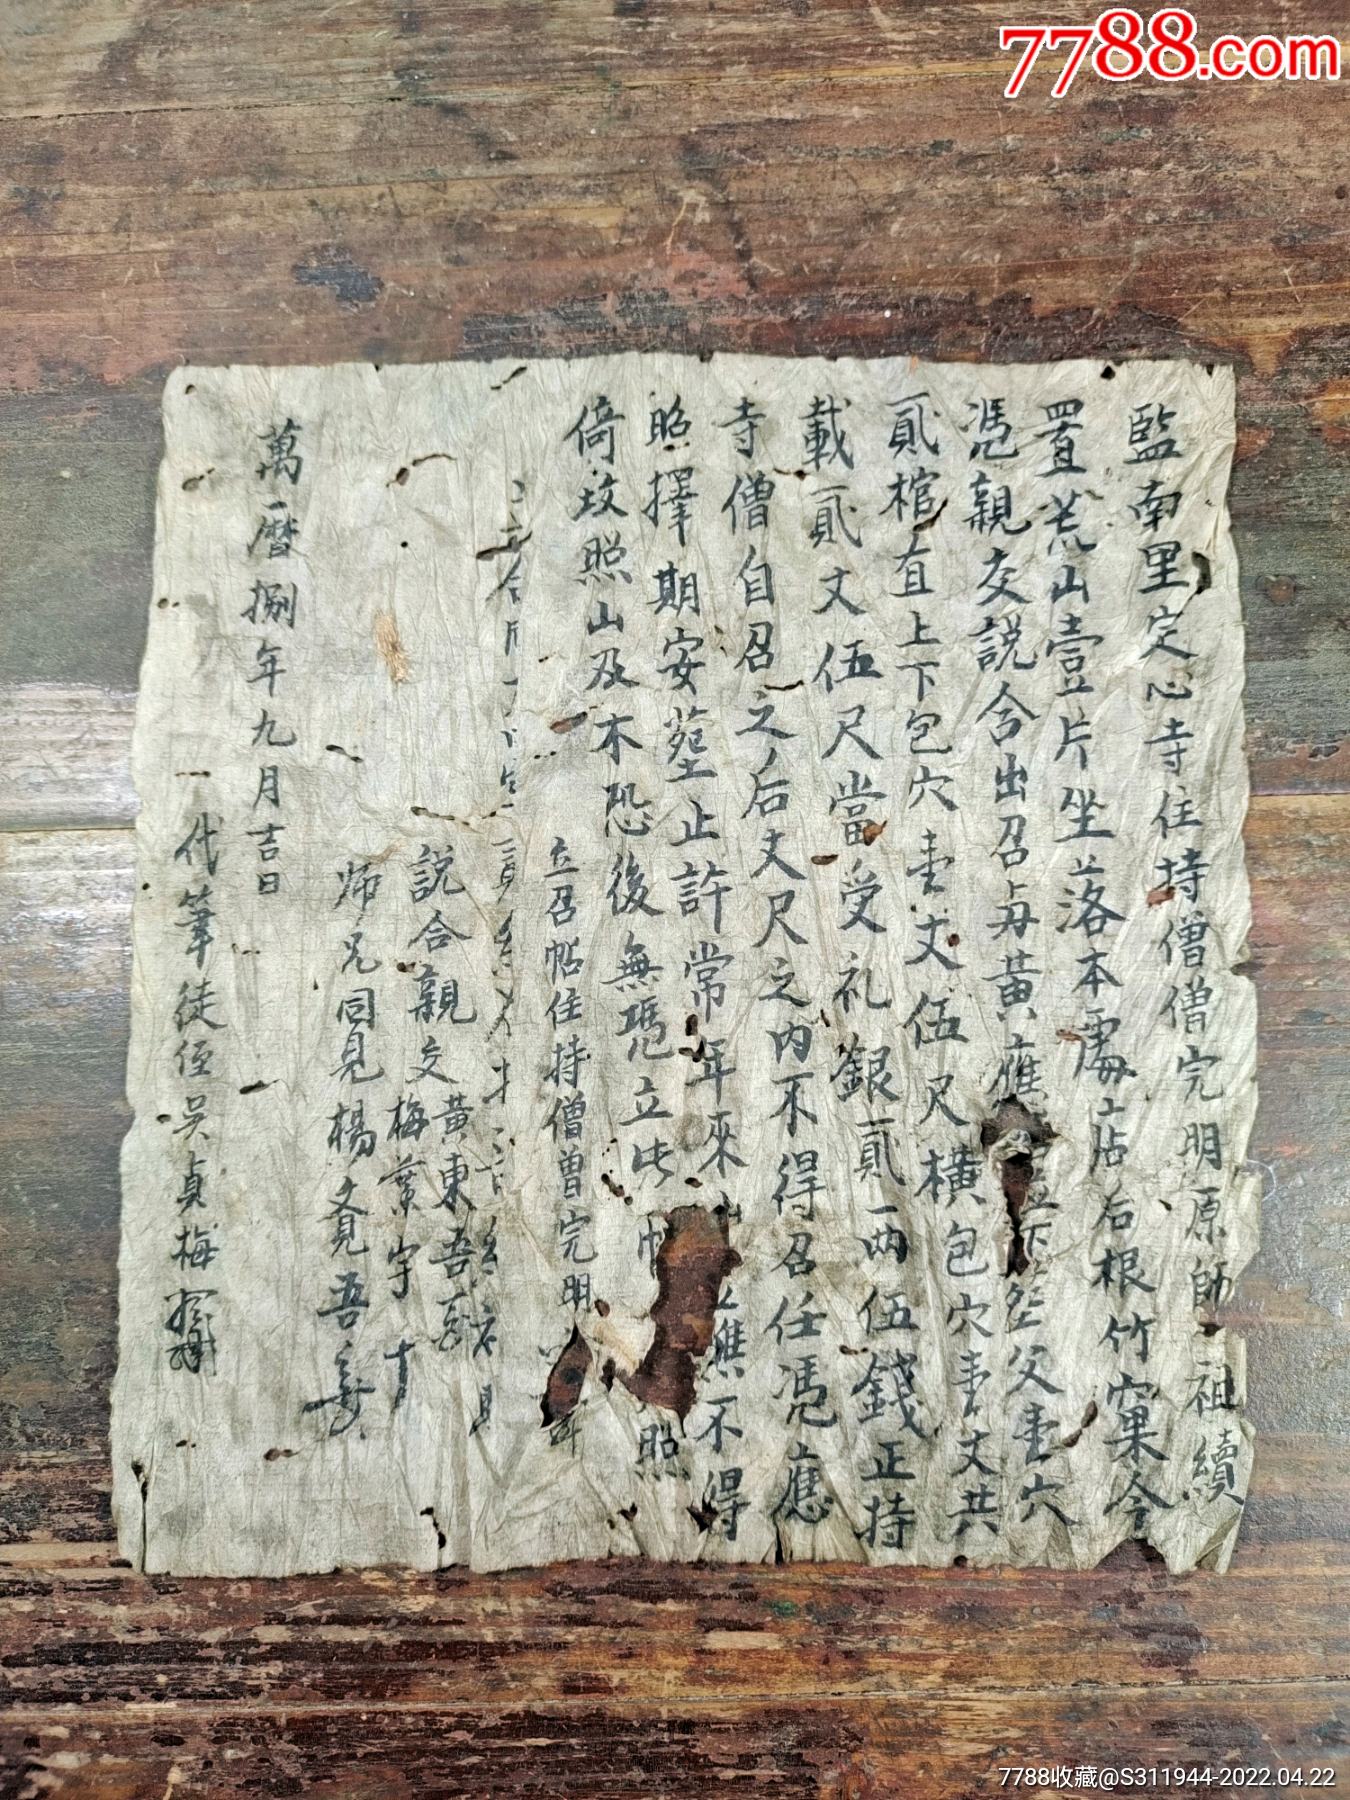 7788.com
監南里定心寺住持僧僧完明原師祖續
置荒山壹片坐落本處店后根竹窠今
馮親交説合出召与黃應下塟父壹穴
貳棺直上下包穴壹丈伍尺橫包穴壹丈共
載貳丈伍尺當受礼銀貳両伍錢正持
寺僧自召之后丈尺之内不得召任馮應
照擇期安塟止許常年來應不得
倚坟照山及木恐後無憑立此帖照
立召帖住持僧曾完明
説合親交黃東吾
梅葉宇
师兄同見楊文覓吾
萬曆捌年九月吉日
代筆徒侄吳貞梅
7788收藏@S311944-2022.04.22